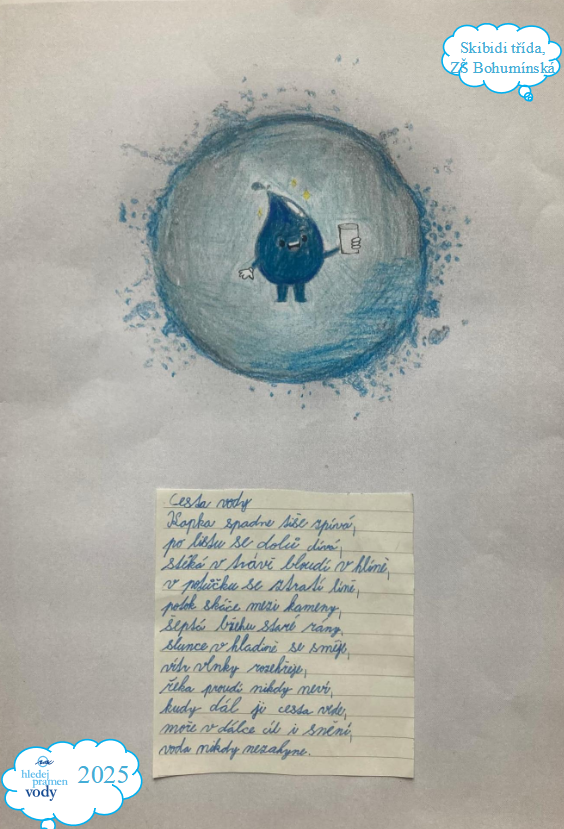 Skibidi třída,
ZŠ Bohumínská
Cesta vody
Kapka spadne tiše zpívá,
po listu se dolů dívá,
stéká v trávě bloudí v hlíně,
v potůčku se ztratí líně,
potok skáče mezi kameny,
šeptá břehu staré rány,
slunce v hladině se směje,
vítr vlnky rozehřeje,
řeka proudí nikdy neví,
kudy dál ji cesta vede,
moře v dálce cíl i snění,
voda nikdy nezahyne.
hledej
pramen
vody
2025